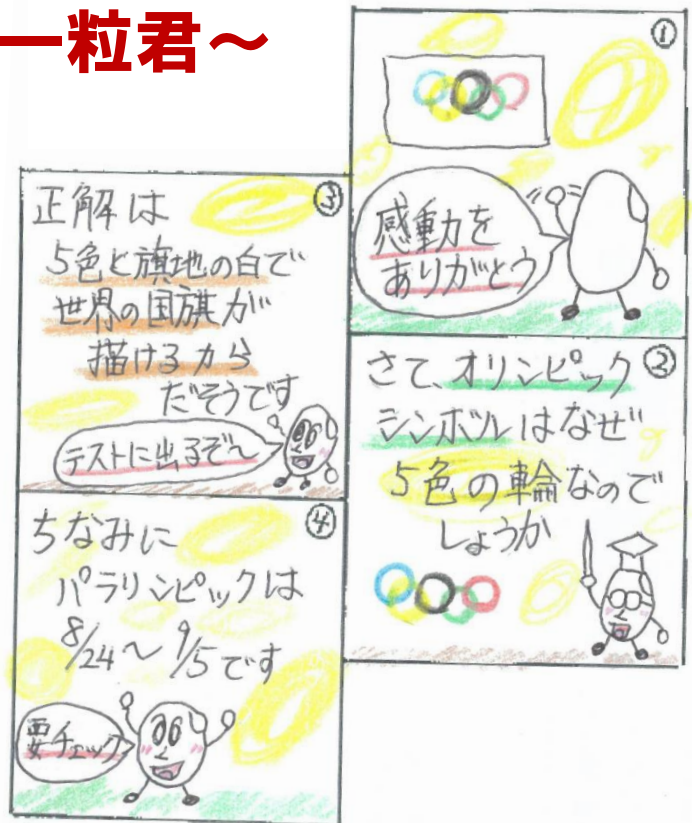 一粒君～
①
感動を
ありがとう
②
さて、オリンピック
シンボルはなぜ
5色の輪なので
しょうか
③
正解は
5色と旗地の白で
世界の国旗が
描けるから
だそうです
テストに出るぞ～
④
ちなみに
パラリンピックは
8/24～9/5です
要チェック